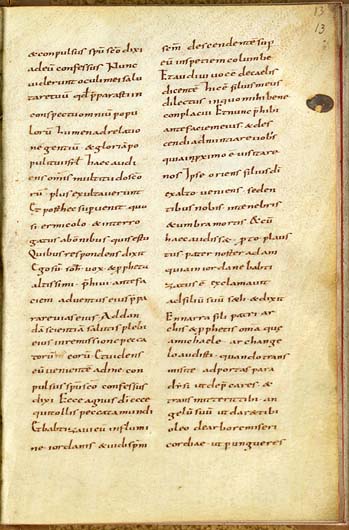 13
13
& conpulsus spu sco dixi
ad eu confessus Nunc
uiderunt oculi mei salu
tare tuu qd pparasti in
conspectu omniu popu
loru lumen ad relatio
ne gentiu & gloria po
puli tui isrl haec audi
ens omnis multitudo sco
ru plus exultauerunt
Et post hec superuenit quo
si ermicolo & interro
gatus ab omnibus quis estu
Quibus respondens dixit
Ego su ioh uox & ppheta
altissimi phiui ante fa
ciem aduentus eius ppa
rare uias eius Ad dan
da scientia salutis plebi
eius in remissione pecca
toru eoru Et uidens
eu uenientе ad me con
pulsus spu sco confessus
dixi Ecce agnus di ecce
qui tollis peccata mundi
Et babtizaui eu in flumi
ne iordanis & uidi spm
scm descendente sup
eu in speciem columbe
Et audiui uoce de caelis
dicente hic e filius meus
dilectus in quo mihi bene
conplacui Et nunc phibi
ante faciem eius & des
cendi adnuntiare uobis
quia in pximo e uisitare
nos Ipse oriens filius di
ex alto ueniens seden
tibus nobis in tenebris
& umbra mortis & cu
haec audisse & pto plaus
tus pater noster adam
quia in iordane babti
zatus e exclamauit
ad filiu suu s&h & dixit
Enarra filii patri ar
chis & pphetis omia que
a michaelo archange
lo audisti quando trans
misi te ad portas para
dysi ut depcares & ut
transmitteret tibi an
gelu suu ut daret tibi
oleo de arbore miseri
cordiae ut pungueres